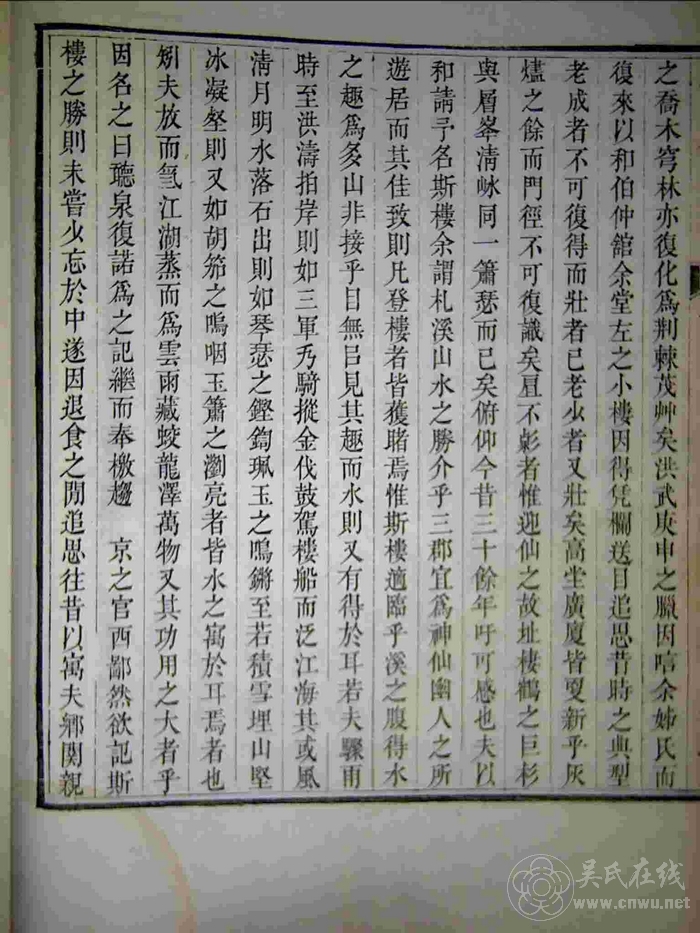 之喬木穹林亦復化爲荆棘茂艸矣洪武庚申之臘因唁余姊氏而
復來以和伯仲舘余堂左之小樓因得凭欄送目追思昔時之典型
老成者不可復得而壯者已老少者又壯矣高堂廣廈皆更新乎灰
燼之餘而門徑不可復識矣亘不彰者惟迎仙之故址棲鶴之巨杉
與層峯淸峸同一簫瑟而已矣俯仰今昔三十餘年吁可感也夫以
和請予名斯樓余謂札溪山水之勝介乎三郡宜爲神仙幽人之所
遊居而其佳致則凡登樓者皆獲睹焉惟斯樓適臨乎溪之腹得水
之趣爲多山非接乎目無吕見其趣而水則又有得於耳若夫驟雨
時至洪濤拍岸則如三軍乃騎摐金伐鼓駕樓船而泛江海其或風
淸月明水落石出則如琴瑟之鏗鍧珮玉之鳴鏘至若積雪埋山堅
冰凝壑則又如胡笳之嗚咽玉簫之瀏亮者皆水之寓於耳焉者也
矧夫放而氳江湖蒸而爲雲雨藏蛟龍澤萬物又其功用之大者乎
因名之曰聽泉復諾爲之記繼而奉檄趨 京之官西鄙然欲記斯
樓之勝則未嘗少忘於中遂因退食之閒追思往昔以寓夫鄉関親
吴氏在线
www.cnwu.net